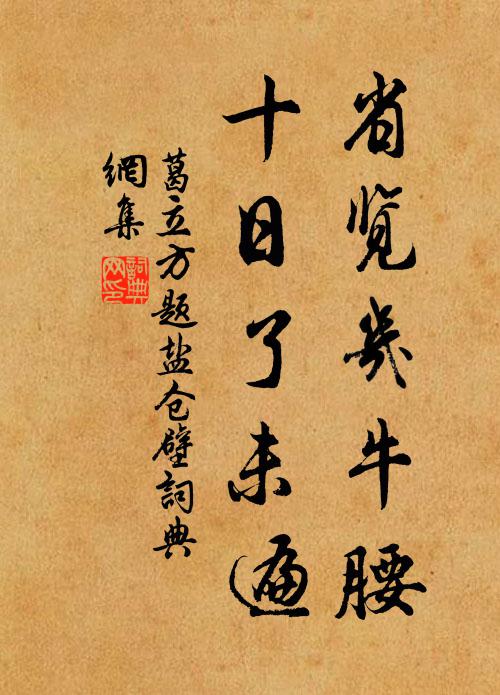 省览几牛腰
十日了未遍
葛立方题盐仓壁詞典
網集
詞典
网印